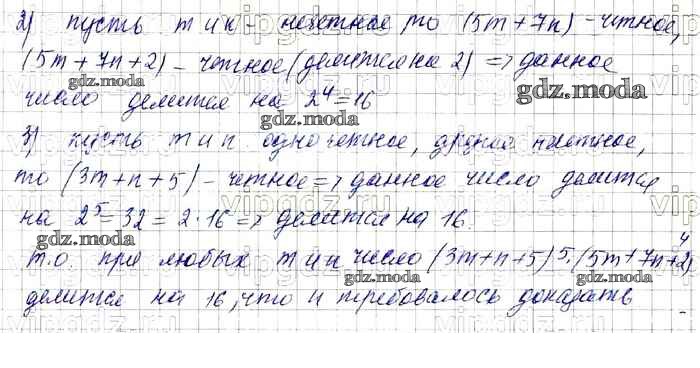 2) пусть m и n - нечетное то (5m + 7n) - четное,
(5m + 7n + 2) - четное (делится на 2) => данное
число делится на 2⁴ = 16
3) пусть m и n одно четное, другое нечетное,
то (3m + n + 5) - четное => данное число делится
на 2⁵ = 32 = 2 · 16 => делится на 16.
т.о. при любых m и n число (3m + n + 5)⁵ · (5m + 7n + 2)⁴
делится на 16, что и требовалось доказать
gdz.moda
gdz.moda
gdz.moda
gdz.moda
gdz.moda
gdz.moda
gdz.moda
vipgdz.ru